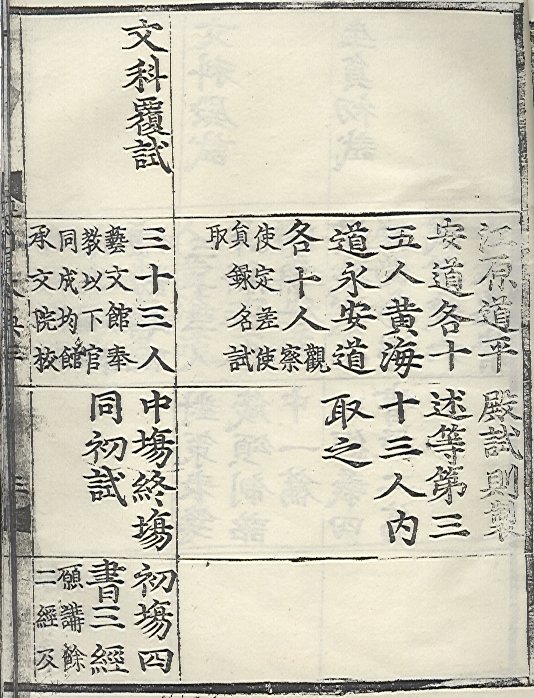 江原道平
安道各十
五人黃海
道永安道
各十人觀察
使定差使
員錄名試
取
殿試則製
述等第三
十三人內
取之
文科覆試
三十三人
藝文館奉
教以下官
同成均館
承文院校
中塲終塲
同初試
初塲四
書三經
願講餘
二經及